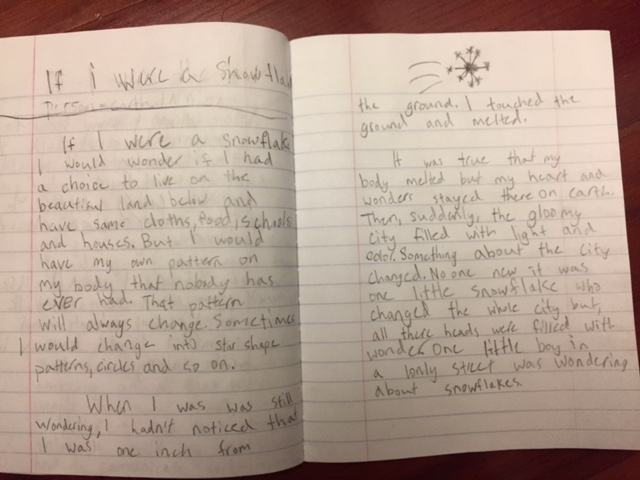 If I were a Snowflake
If I were a snowflake
I would wonder if I had
a choice to live on the
beautiful land below and
have same cloths, food, schools
and houses. But I would
have my own pattern on
my body that nobody has
ever had. That pattern
will always change. Sometimes
I would change into star shape
patterns, circles and so on.
When I was was still
wondering, I hadn't noticed that
I was one inch from
the ground. I touched the
ground and melted.
It was true that my
body melted but my heart and
wonders stayed there on earth.
Then, suddenly, the gloomy
city filled with light and
color. Something about the city
changed. No one new it was
one little snowflake who
changed the whole city but,
all there heads were filled with
wonder. One little boy in
a lonly street was wondering
about snowflakes.